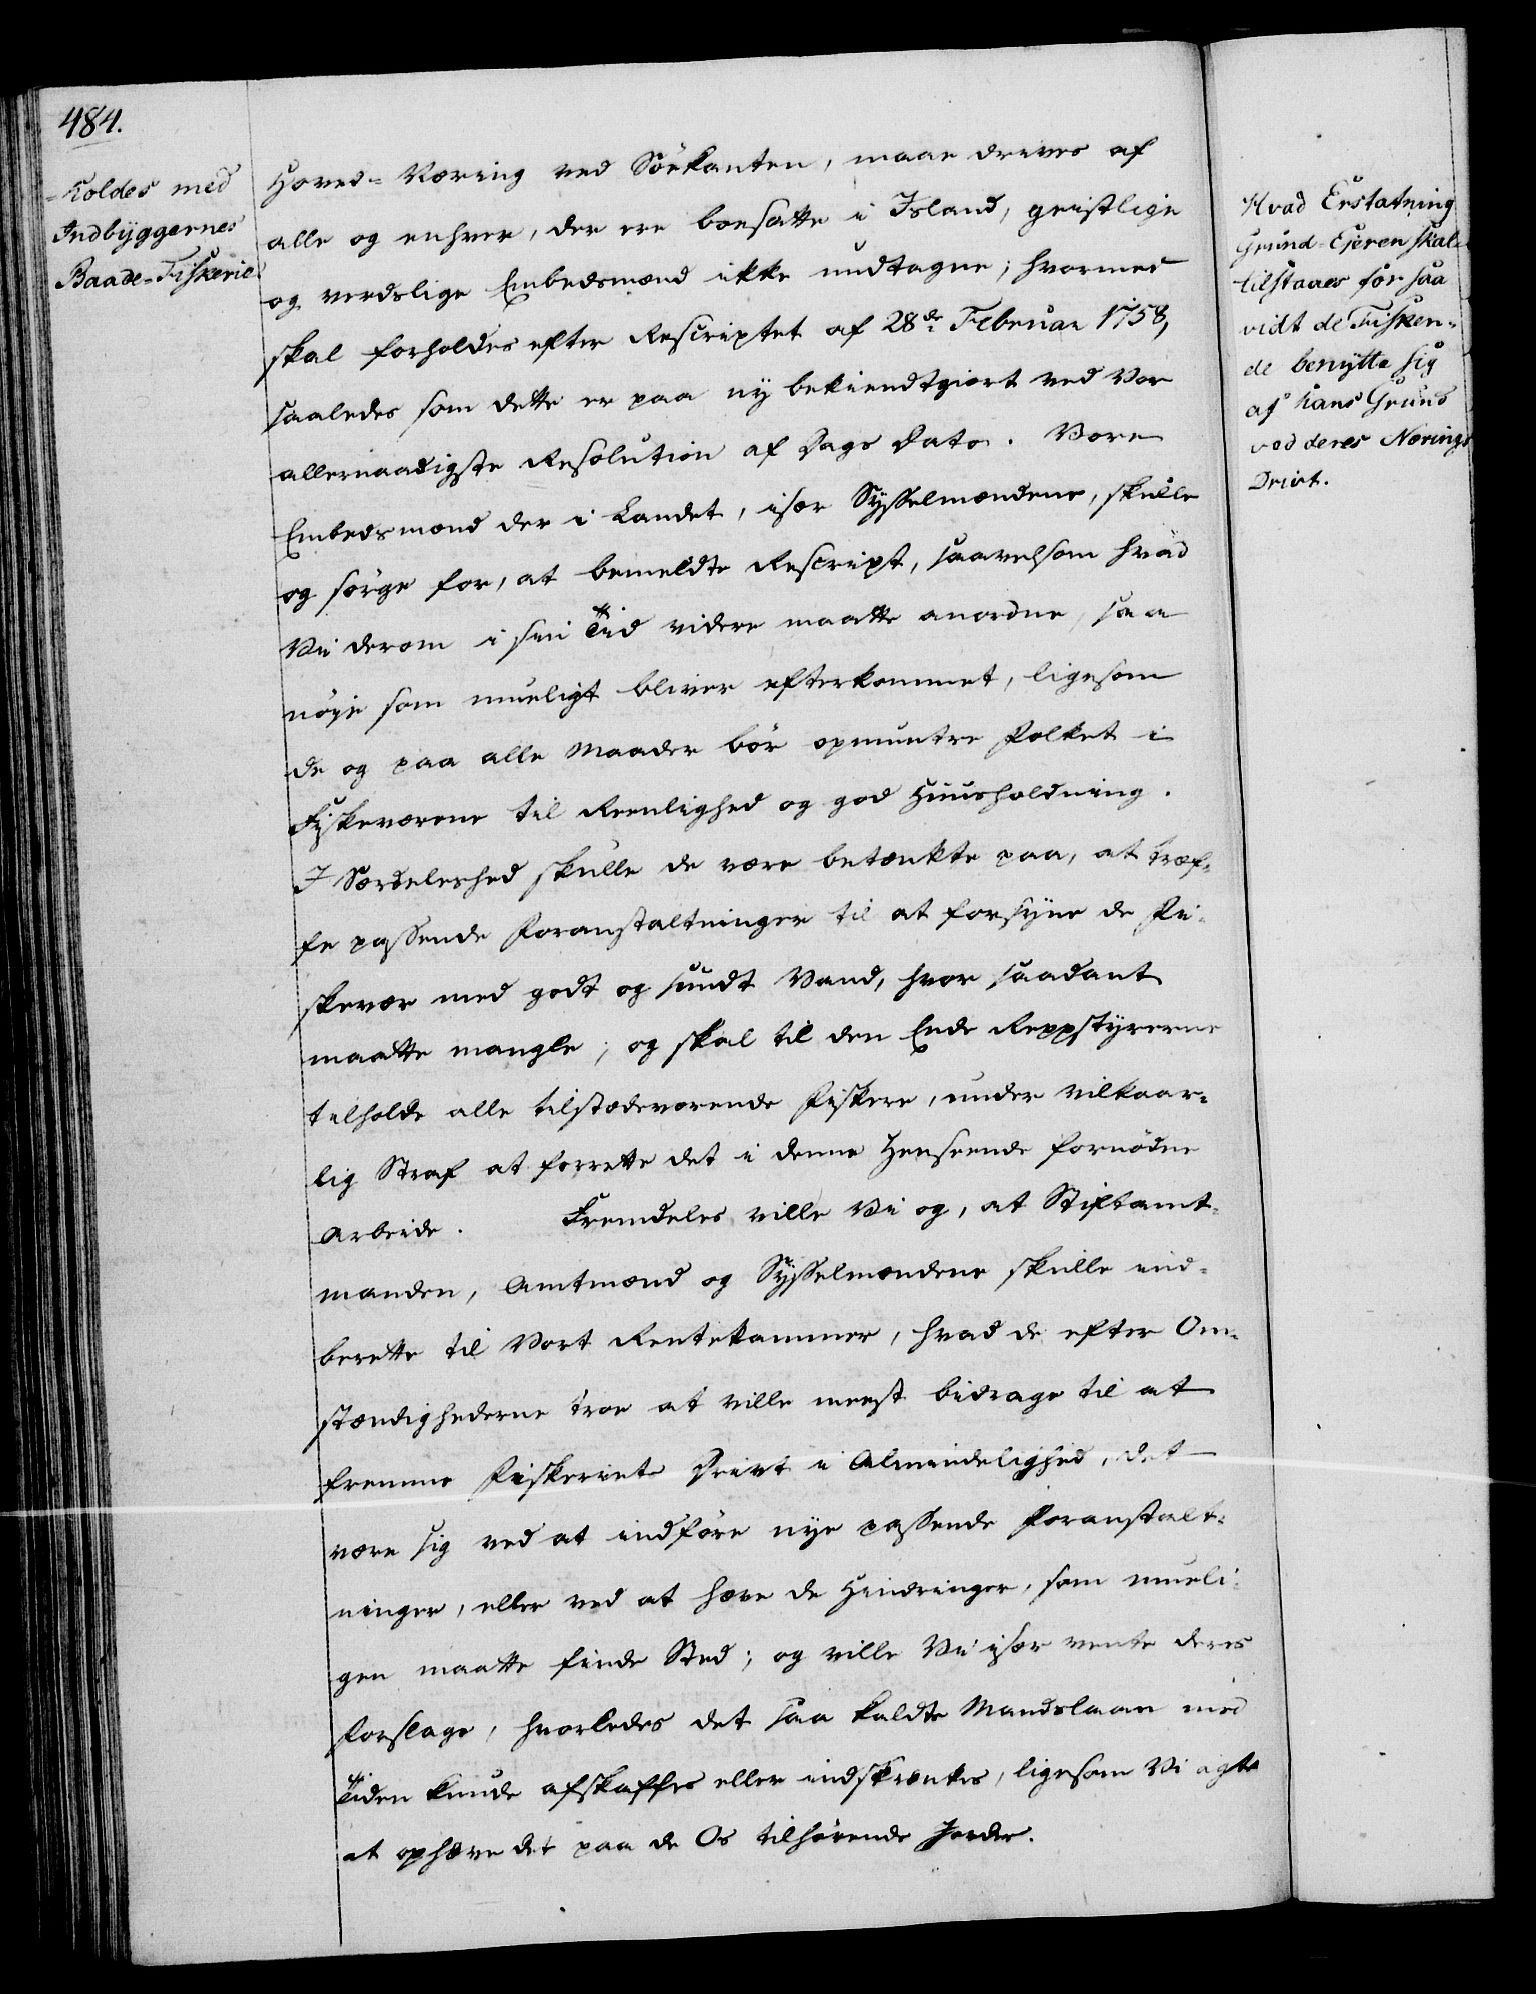 484.
=holdes med
Indbyggernes
Baade=Fiskerie
Hoved=Næring ved Söekanten, maae drives af
alle og enhver, der ere boesatte i Island, geistlige
og verdslige Embedsmænd ikke undtagne; hvormed
skal forholdes efter Rescriptet af 28de Februar 1758,
saaledes som dette er paa ny bekiendtgiort ved Vor
allernaadigste Resolution af Dags Dato. Vore
Embedsmænd der i Landet, især Sysselmændene, skulle
og sörge for, at bemeldte Rescript, saavelsom hvad
Vi derom i sin Tid videre maatte anordne, saa
nöye som mueligt bliver efterkommet, ligesom
de og paa alle Maader bör opmuntre Folket i
Fiskeværene til Reenlighed og god Huusholdning.
I Særdeleshed skulle de være betænkte paa, at træf=
fe passende Foranstaltninger til at forsyne de Fi=
skevær med godt og sundt Vand, hvor saadant
maatte mangle; og skal til den Ende Reppstyrerne
tilholde alle tilstædeværende Fiskere, under vilkaar=
lig Straf at forrette det i denne Henseende fornödne
Arbeide. Fremdeles ville Vi og, at Stiftamt=
manden, Amtmænd og Sysselmændene skulle ind=
berette til Vort Rentekammer, hvad de efter Om=
stændighederne troe at ville meest bidrage til at
fremme Fiskeriets Drivt i Almindelighed, det
være sig ved at indföre nye passende Foranstalt=
ninger, eller ved at hæve de Hindringer, som mueli=
gen maatte finde Sted; og ville Vi især vente deres
Forslage, hvorledes det saa kaldte Mandslaan med
Tiden kunde afskaffes eller indskrænkes, ligesom Vi agte
at ophæve det paa de Os tilhörende Jorder.
Hvad Erstatning
Grund=Ejeren skal
tilstaaes for saa
vidt de Fisken=
de benytte sig
af hans Grund
ved deres Nærings
Drivt.